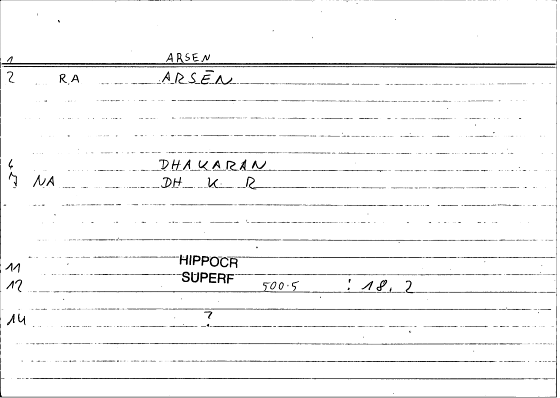 1 ARSEN
2 RA ARSĒN
6 DHAKARAN
7 NA DH K R
11 HIPPOCR
12 SUPERF 500.5 : 18, 2
14 ?